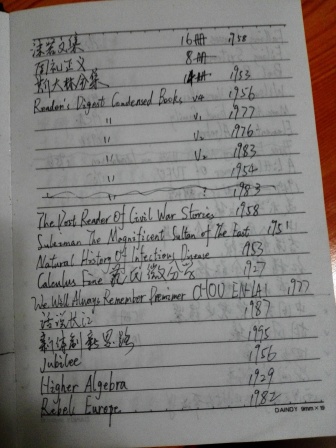 沫若文集 16册 1958
周礼正义 8册
斯大林全集 1册 1953
Reader's Digest Condensed Books v4 1956
" v1 1977
" v2 1976
" v2 1983
" 1954
" ? 1983
The Post Reader Of Civil War Stories 1958
Suleiman The Magnificent Sultan Of The East 1951
Natural History Of Infectious Disease 1953
Calculus 1927
We Will Always Remember Premier CHOU EN-LAI 1977
话说长江 1987
1955
Jubilee 1956
Higher Algebra 1929
Rebel Europe 1982
DAINDY 9mm × 18